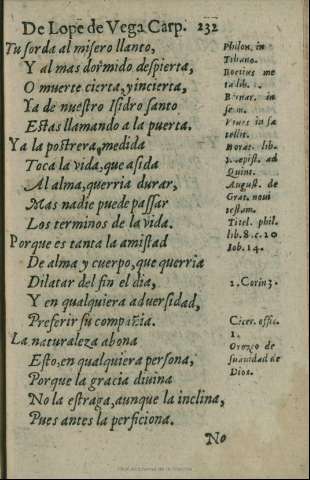 De Lope de Vega Carp. 232
Tu sorda al misero llanto,
Y al mas dormido despierta,
O muerte cierta, y incierta,
Ya de nuestro Isidro santo
Estas llamando a la puerta.
Ya la postrera medida
Toca la vida, que asida
Al alma, querria durar,
Mas nadie puede passar
Los terminos de la vida.
Porque es tanta la amistad
De alma y cuerpo, que querria
Dilatar del fin el dia,
Y en qualquiera adversidad,
Preferir su compañia.
La naturaleza abona
Esto, en qualquiera persona,
Porque la gracia divina
No la estraga, aunque la inclina,
Pues antes la perficiona.
No
Philon. in
Boetius me
ta lib. 1.
Bernar. in
Vives in sa
tellit.
Horat. lib.
epist. ad
Quint.
August. de
Grat. novi
testam.
Titel. phil.
lib. 8. c. 20
Iob. 14.
1. Corin 3.
Cicer. offic.
1.
Orozco de
suavidad de
Dios.